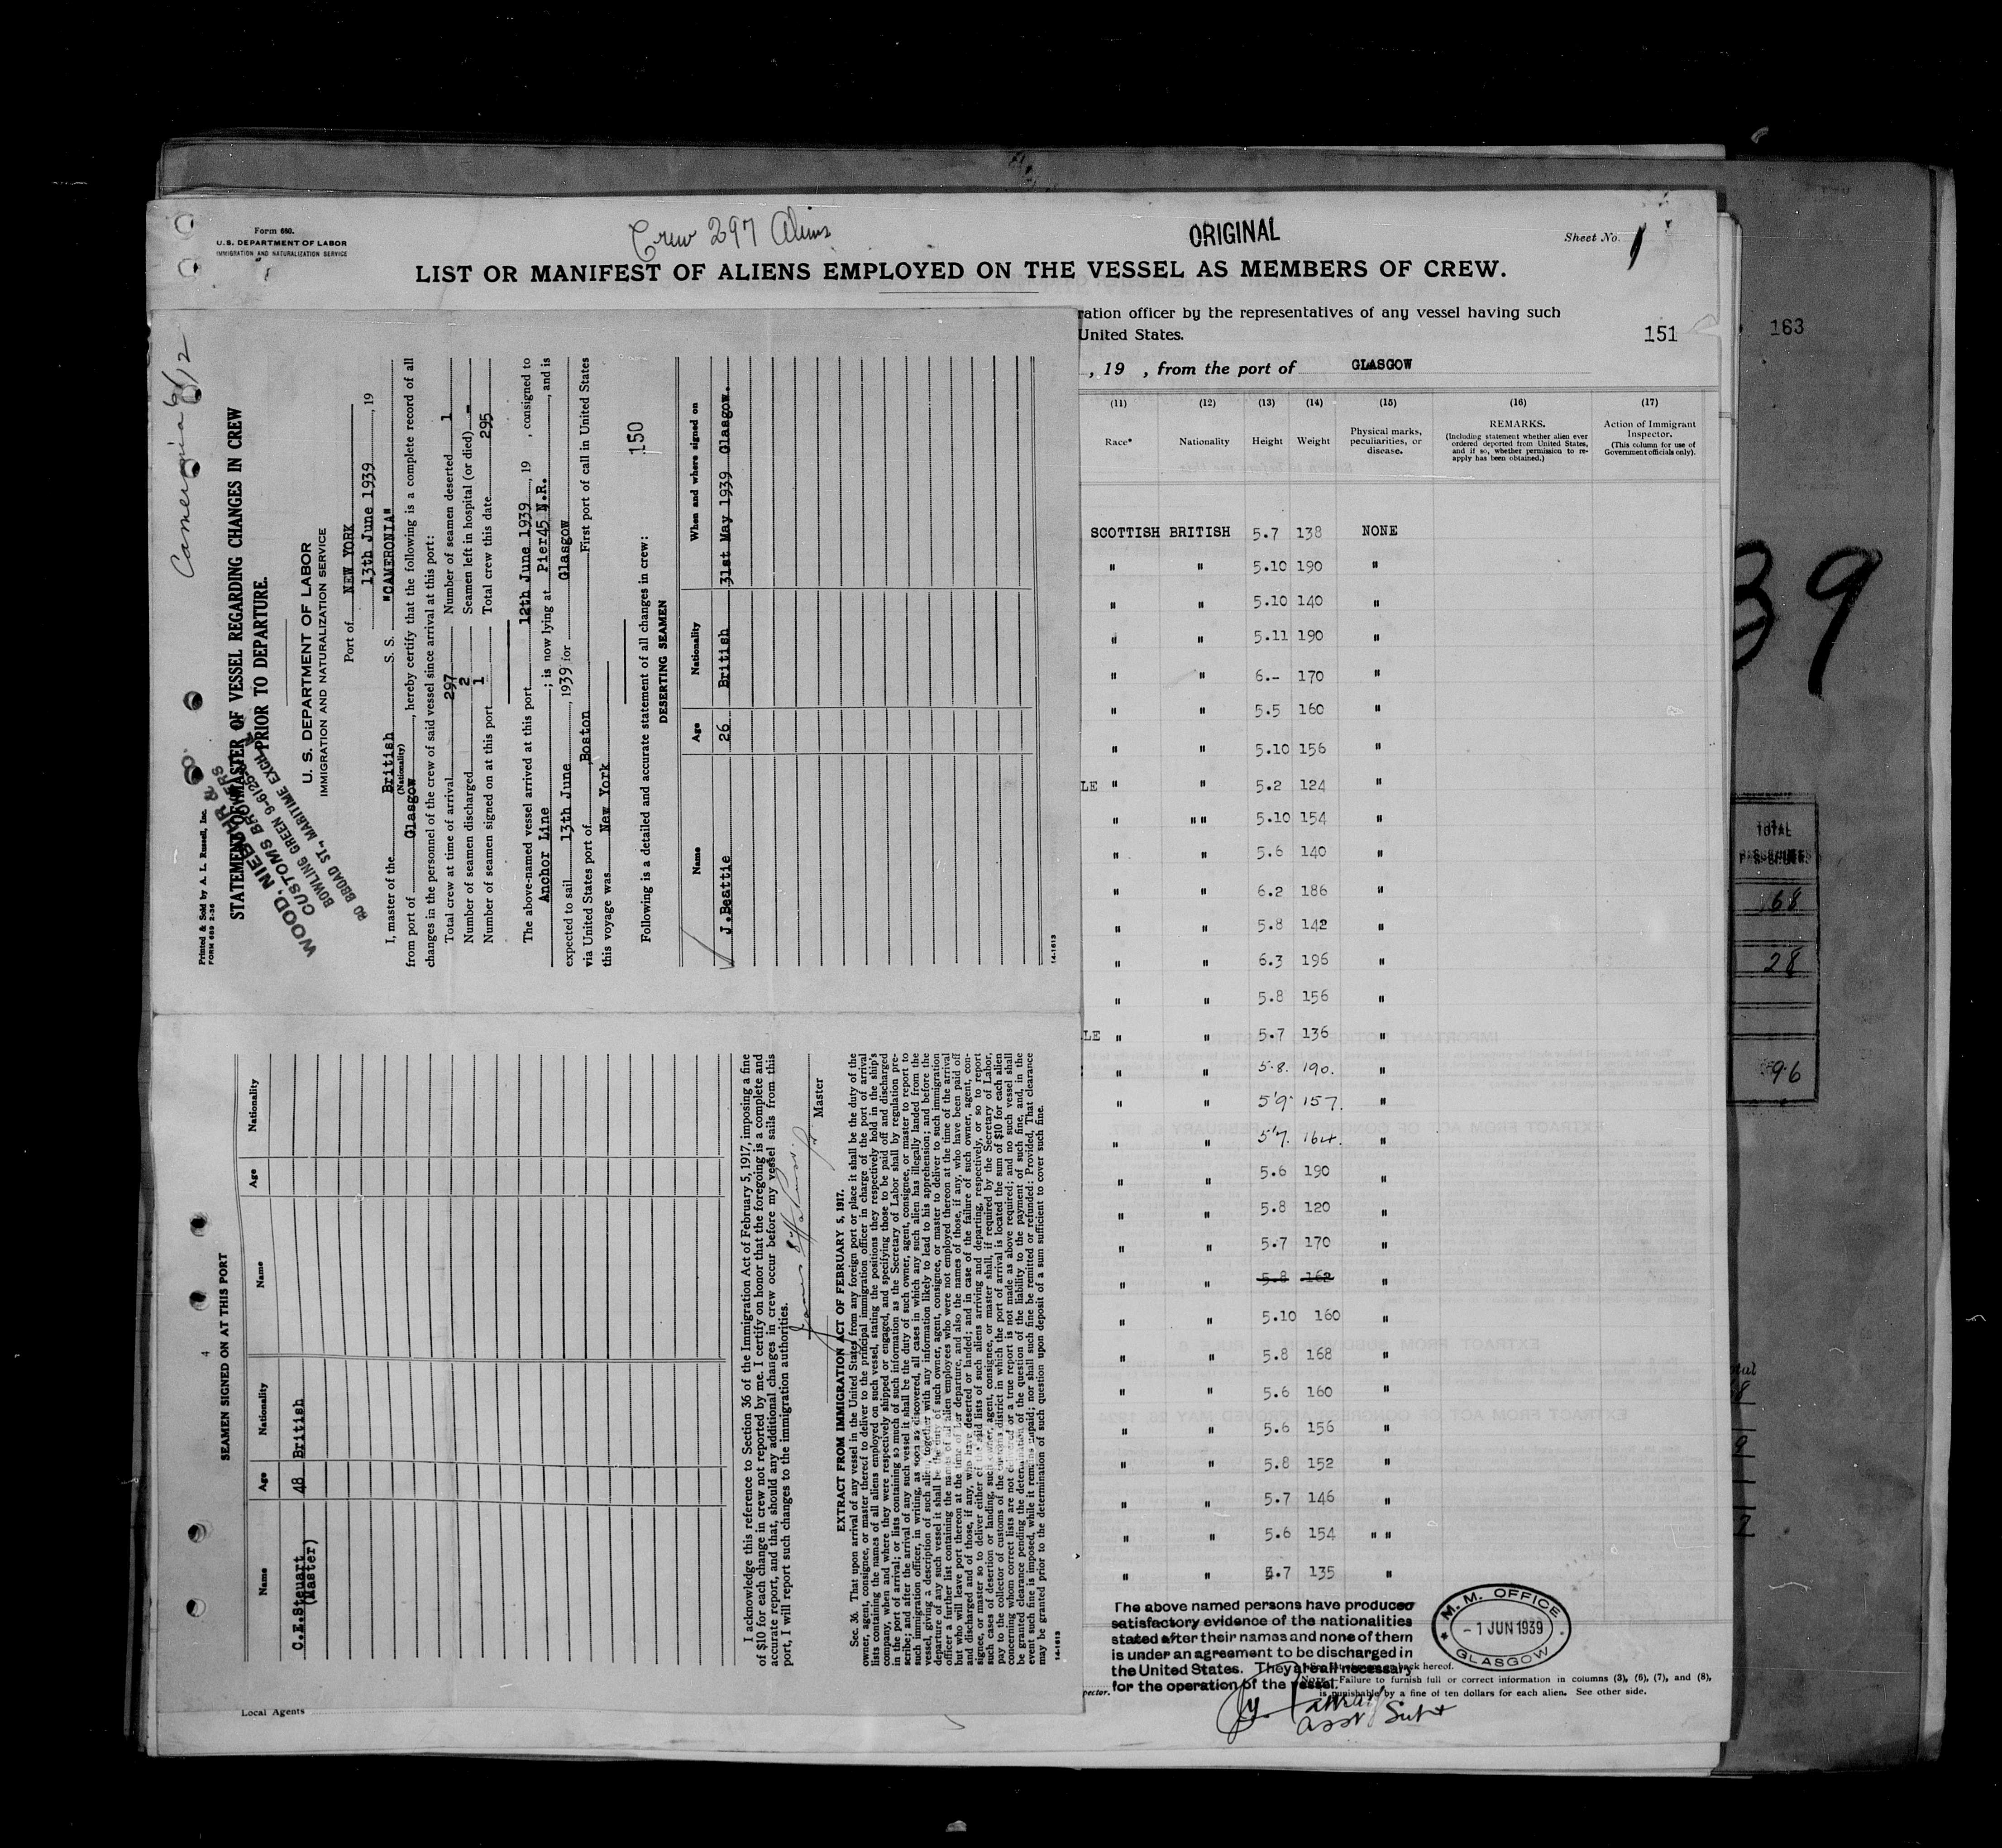 Form 680.
U.S. DEPARTMENT OF LABOR
IMMIGRATION AND NATURALIZATION SERVICE
Crew 297 Aliens
ORIGINAL
Sheet No. 1
LIST OR MANIFEST OF ALIENS EMPLOYED ON THE VESSEL AS MEMBERS OF CREW.
ration officer by the representatives of any vessel having such
United States.
151
, 19 , from the port of GLASGOW
(11) (12) (13) (14) (15) (16) (17)
Race* Nationality Height Weight Physical marks, peculiarities, or disease. REMARKS. (Including statement whether alien ever ordered deported from United States, and if so, whether permission to reapply has been obtained.) Action of Immigrant Inspector. (This column for use of Government officials only).
SCOTTISH BRITISH 5.7 138 NONE
" " 5.10 190 "
" " 5.10 140 "
" " 5.11 190 "
" " 6.- 170 "
" " 5.5 160 "
" " 5.10 156 "
LE " " 5.2 124 "
" "" 5.10 154 "
" " 5.6 140 "
" " 6.2 186 "
" " 5.8 142 "
" " 6.3 196 "
" " 5.8 156 "
LE " " 5.7 136 "
" " 5.8. 190. "
" " 5'9" 157. "
" " 5'7. 164. "
" " 5.6 190 "
" " 5.8 120 "
" " 5.7 170 "
" " 5.8 162 "
" " 5.10 160 "
" " 5.8 168 "
" " 5.6 160 "
" " 5.6 156 "
" " 5.8 152 "
" " 5.7 146 "
" " 5.6 154 " "
" " 5.7 135 "
The above named persons have produced
satisfactory evidence of the nationalities
stated after their names and none of them
is under an agreement to be discharged in
the United States. They are all necessary
for the operation of the vessel.
M. M. OFFICE
- 1 JUN 1939
GLASGOW
back hereof.
NOTE.—Failure to furnish full or correct information in columns (3), (6), (7), and (8),
is punishable by a fine of ten dollars for each alien. See other side.
pector.
Asst Supt
Local Agents
Cameronia 6/12
Printed & Sold by A. L. Russell, Inc.
FORM 689 2-36
STATEMENT OF MASTER OF VESSEL REGARDING CHANGES IN CREW
PRIOR TO DEPARTURE.
WOOD, NIEBUHR & CO.
CUSTOMS BROKERS
BOWLING GREEN 9-6125
80 BROAD ST., MARITIME EXCH.
U. S. DEPARTMENT OF LABOR
IMMIGRATION AND NATURALIZATION SERVICE
Port of NEW YORK
13th June 1939, 19
I, master of the British S. S. "CAMERONIA"
(Nationality)
from port of Glasgow, hereby certify that the following is a complete record of all
changes in the personnel of the crew of said vessel since arrival at this port:
Total crew at time of arrival 297 Number of seamen deserted 1
Number of seamen discharged 2 Seamen left in hospital (or died) -
Number of seamen signed on at this port 1 Total crew this date 295
The above-named vessel arrived at this port 12th June 1939, 19 , consigned to
Anchor Line; is now lying at Pier45 N.R., and is
expected to sail 13th June, 1939 for Glasgow
via United States port of Boston First port of call in United States
this voyage was New York
150
Following is a detailed and accurate statement of all changes in crew:
DESERTING SEAMEN
Name Age Nationality When and where signed on
J.Beattie 26 British 31st May 1939 Glasgow.
14-1613
4
SEAMEN SIGNED ON AT THIS PORT
Name Age Nationality Name Age Nationality
C.E.Steuart 48 British
(Master)
I acknowledge this reference to Section 36 of the Immigration Act of February 5, 1917, imposing a fine
of $10 for each change in crew not reported by me. I certify on honor that the foregoing is a complete and
accurate report, and that, should any additional changes in crew occur before my vessel sails from this
port, I will report such changes to the immigration authorities.
Master
EXTRACT FROM IMMIGRATION ACT OF FEBRUARY 5, 1917.
Sec. 36. That upon arrival of any vessel in the United States from any foreign port or place it shall be the duty of the
owner, agent, consignee, or master thereof to deliver to the principal immigration officer in charge of the port of arrival
lists containing the names of all aliens employed on such vessel, stating the positions they respectively hold in the ship's
company, when and where they were respectively shipped or engaged, and specifying those to be paid off and discharged
in the port of arrival; or lists containing so much of such information as the Secretary of Labor shall by regulation pre-
scribe; and after the arrival of any such vessel it shall be the duty of such owner, agent, consignee, or master to report to
such immigration officer, in writing, as soon as discovered, all cases in which any such alien has illegally landed from the
vessel, giving a description of such alien, together with any information likely to lead to his apprehension; and before the
departure of any such vessel it shall be the duty of such owner, agent, consignee, or master to deliver to such immigration
officer a further list containing the names of all alien employees who were not employed thereon at the time of the arrival
but who will leave port thereon at the time of her departure, and also the names of those, if any, who have been paid off
and discharged and of those, if any, who have deserted or landed; and in case of the failure of such owner, agent, con-
signee, or master so to deliver either of the said lists of such aliens arriving and departing, respectively, or so to report
such cases of desertion or landing, such owner, agent, consignee, or master shall, if required by the Secretary of Labor,
pay to the collector of customs of the customs district in which the port of arrival is located the sum of $10 for each alien
concerning whom correct lists are not delivered or a true report is not made as above required; and no such vessel shall
be granted clearance pending the determination of the question of the liability to the payment of such fine, and, in the
event such fine is imposed, while it remains unpaid; nor shall such fine be remitted or refunded: Provided, That clearance
may be granted prior to the determination of such question upon deposit of a sum sufficient to cover such fine.
14-1613
163
39
TOTAL
168
28
96